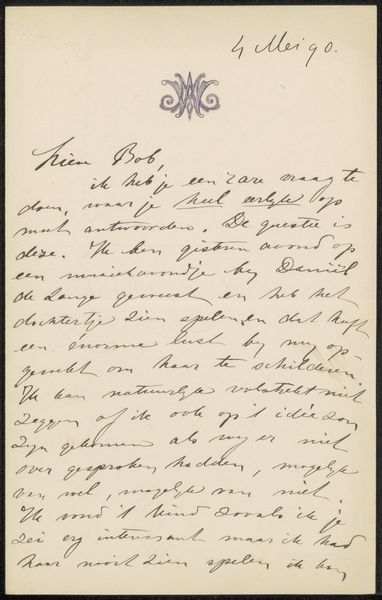 4 Mei 90.
Lieve Bob,
ik heb je een rare vraag te
doen, waar je heel eerlyk op
moet antwoorden. De questie is
deze. Ik ben gisteren avond op
een muziekavondje by Daniël
de Lange geweest en heb het
dochtertje zien spelen, en dat heeft
een enorme lust by my op-
gewekt om haar te schilderen.
Ik kan natuurlyk volstrekt niet
zeggen of ik ook op 't idée zou
zyn gekomen als wy er niet
over gesproken hadden, mogelyk
van wel, mogelyk van niet.
Ik vond 't kind zooals ik je
zei erg interessant maar ik had
haar nooit zien spelen ik kan